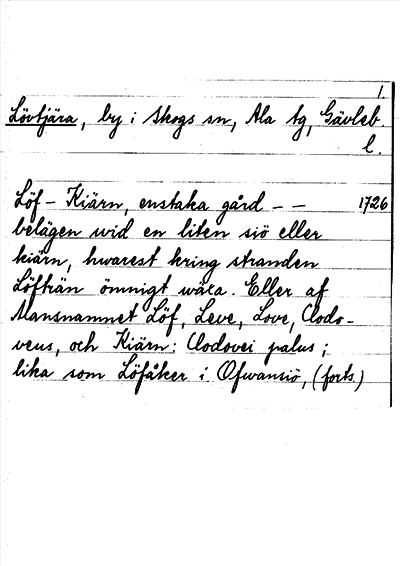 1.
Lövtjära, by i Skogs sn, Ala tg, Gävleb.
l.
Löf-Kiärn, enstaka gård -- 1726
belägen wid en liten siö eller
kiärn, hwarest kring stranden
Löfträn ömnigt wäxa. Eller af
Mansnamnet Löf, Leve, Love, Clodo-
veus, och Kiärn: Clodovei palus;
lika som Löfåker i Ofwansiö, (forts.)